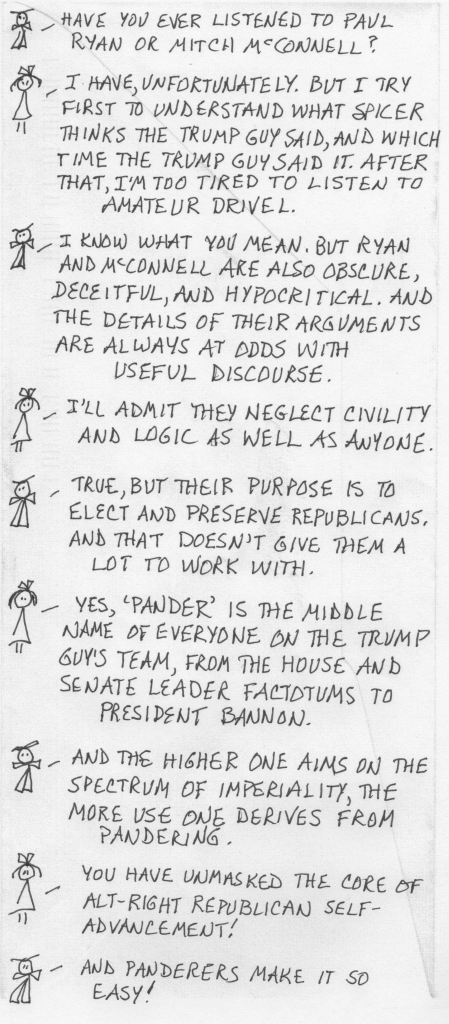 HAVE YOU EVER LISTENED TO PAUL
RYAN OR MITCH McCONNELL?
I HAVE, UNFORTUNATELY. BUT I TRY
FIRST TO UNDERSTAND WHAT SPICER
THINKS THE TRUMP GUY SAID, AND WHICH
TIME THE TRUMP GUY SAID IT. AFTER
THAT, I'M TOO TIRED TO LISTEN TO
AMATEUR DRIVEL.
I KNOW WHAT YOU MEAN. BUT RYAN
AND McCONNELL ARE ALSO OBSCURE,
DECEITFUL, AND HYPOCRITICAL. AND
THE DETAILS OF THEIR ARGUMENTS
ARE ALWAYS AT ODDS WITH
USEFUL DISCOURSE.
I'LL ADMIT THEY NEGLECT CIVILITY
AND LOGIC AS WELL AS ANYONE.
TRUE, BUT THEIR PURPOSE IS TO
ELECT AND PRESERVE REPUBLICANS.
AND THAT DOESN'T GIVE THEM A
LOT TO WORK WITH.
YES, 'PANDER' IS THE MIDDLE
NAME OF EVERYONE ON THE TRUMP
GUY'S TEAM, FROM THE HOUSE AND
SENATE LEADER FACTOTUMS TO
PRESIDENT BANNON.
AND THE HIGHER ONE AIMS ON THE
SPECTRUM OF IMPERIALITY, THE
MORE USE ONE DERIVES FROM
PANDERING.
YOU HAVE UNMASKED THE CORE OF
ALT-RIGHT REPUBLICAN SELF-
ADVANCEMENT!
AND PANDERERS MAKE IT SO
EASY!